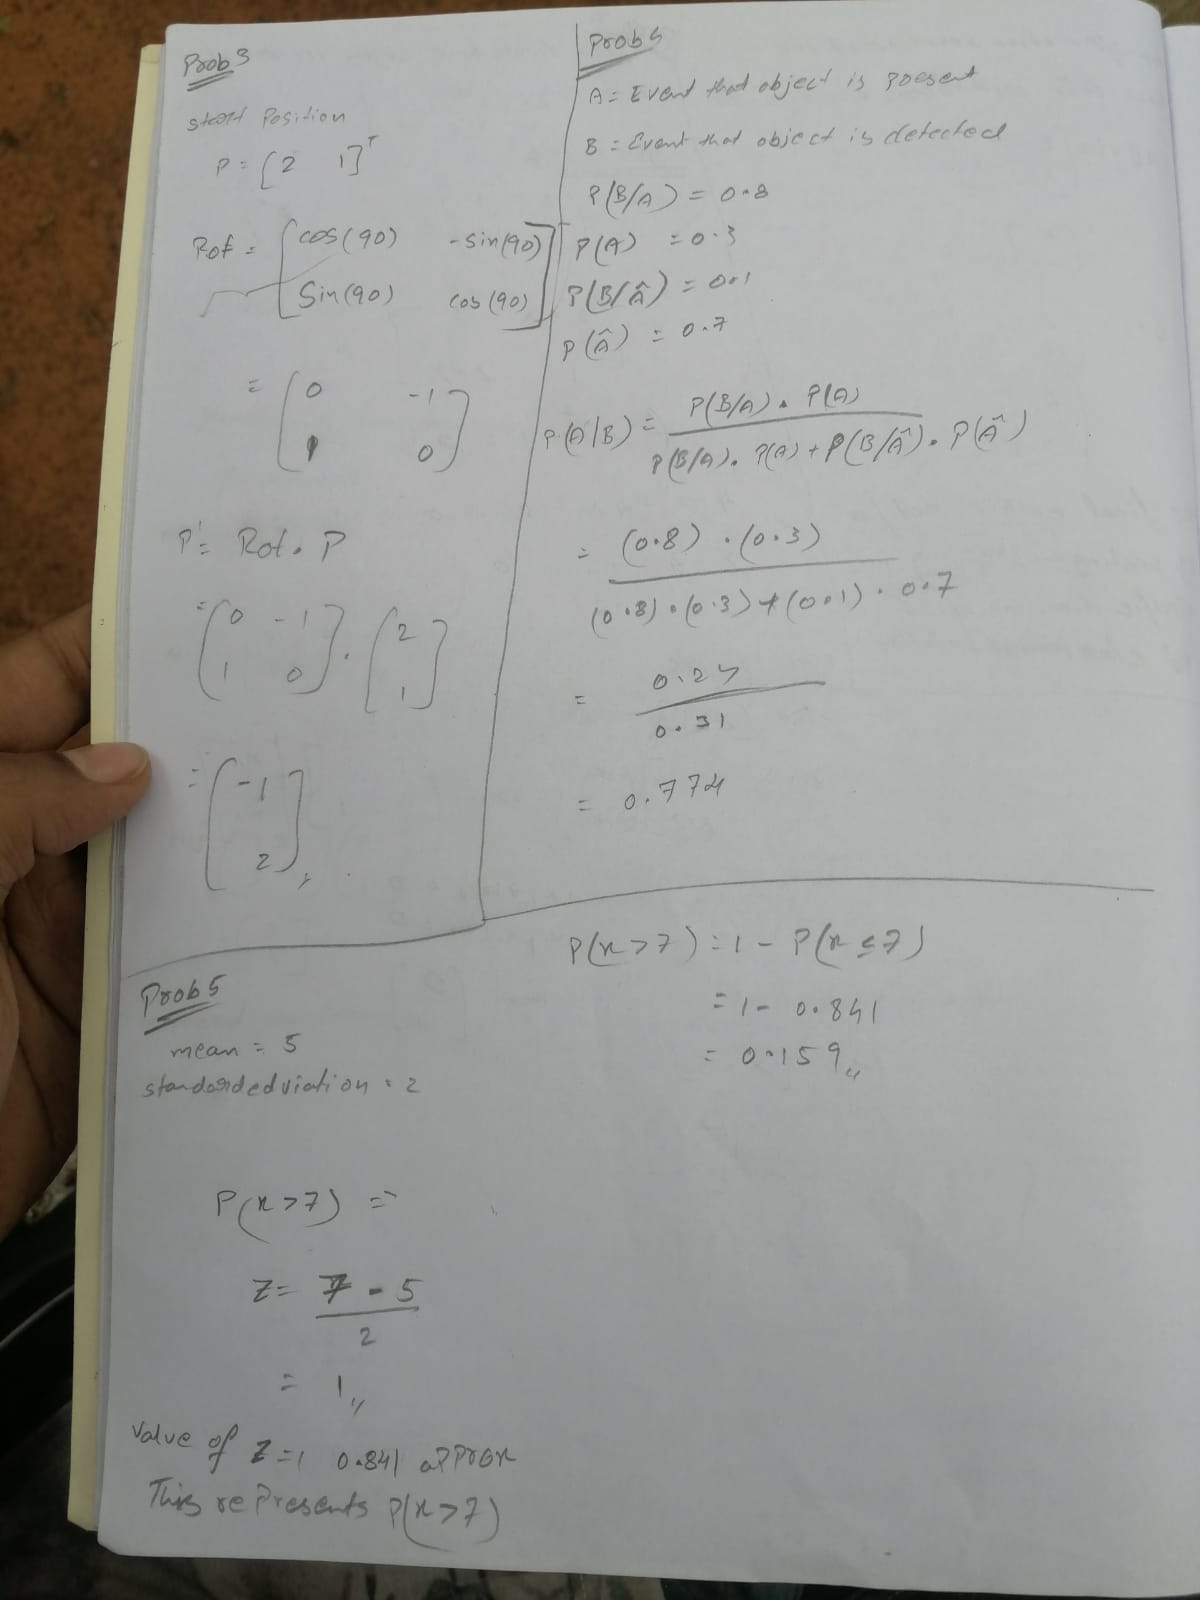 Prob 3
start Position
P = [2 1]ᵀ
Rot = [cos(90) -sin(90)]
[Sin(90) cos(90)]
= [0 -1]
[1 0]
P' = Rot. P
= [0 -1] . [2]
[1 0] [1]
= [-1]
[2]
Prob 4
A = Event that object is present
B = Event that object is detected
P(B/A) = 0.8
P(A) = 0.3
P(B/Â) = 0.1
P(Â) = 0.7
P(A|B) = P(B/A) . P(A)
P(B/A). P(A) + P(B/Â). P(Â)
= (0.8) . (0.3)
(0.8) . (0.3) + (0.1) . 0.7
= 0.24
0.31
= 0.774
Prob 5
mean = 5
standardedviation = 2
P(x > 7) =>
Z = 7 - 5
2
= 1,,
Value of Z = 1 0.841 approx
This represents P(x > 7)
P(x > 7) = 1 - P(x ≤ 7)
= 1 - 0.841
= 0.159,,